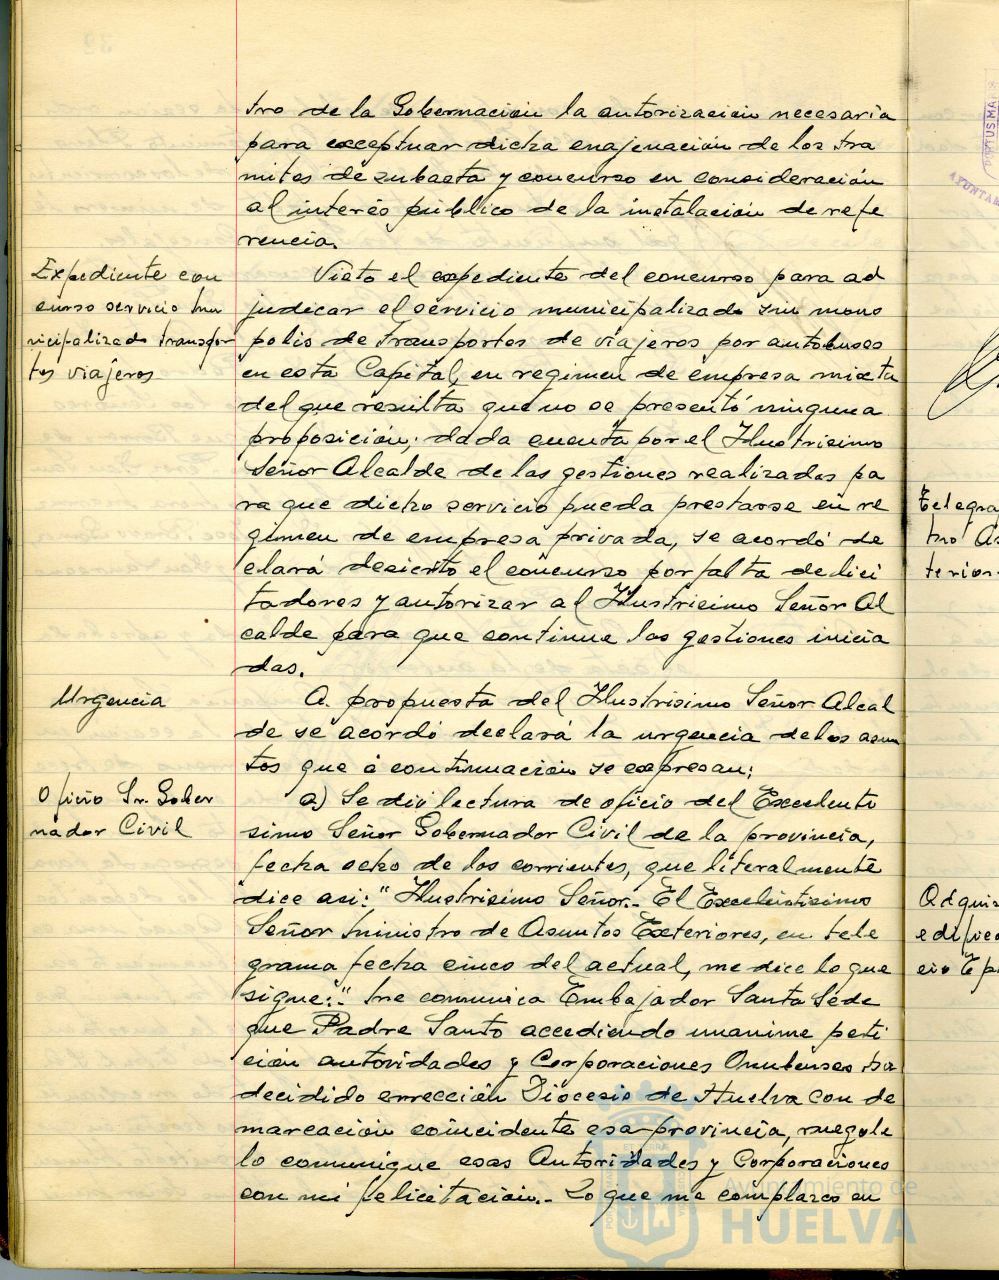 tro de la Gobernación la autorización necesaria
para exceptuar dicha enajenación de los tra
mites de subasta y concurso en consideración
al interés público de la instalación de refe
rencia.
Expediente con
curso servicio mu
nicipalizado transpor
tes viajeros
Visto el expediente del concurso para ad
judicar el servicio municipalizado sin mono
polio de transportes de viajeros por autobuses
en esta Capital, en regimen de empresa mixta
del que resulta que no se presentó ninguna
proposición; dada cuenta por el Ilustrisimo
Señor Alcalde de las gestiones realizadas pa
ra que dicho servicio pueda prestarse en re
gimen de empresa privada, se acordó de
clará desierto el concurso por falta de lici
tadores y autorizar al Ilustrisimo Señor Al
calde para que continue las gestiones inicia
das.
Urgencia
A propuesta del Ilustrisimo Señor Alcal
de se acordó declará la urgencia de los asun
tos que á continuación se expresan:
Oficio Sr. Gober
nador Civil
a) Se dió lectura de oficio del Excelenti
simo Señor Gobernador Civil de la provincia,
fecha ocho de los corrientes, que literalmente
dice asi: " Ilustrisimo Señor.- El Excelentisimo
Señor Ministro de Asuntos Exteriores, en tele
grama fecha cinco del actual, me dice lo que
sigue:" Me comunica Embajador Santa Sede
que Padre Santo accediendo unanime peti
ción autoridades y Corporaciones Onubenses ha
decidido errección Diocesis de Huelva con de
marcación coincidente esa provincia, ruegole
lo comunique esas Autoridades y Corporaciones
con mi felicitación.- Lo que me complazco en
Telegra
tro As
terior
Adquis
edifico
cio Ep
PORTUS MAR
AYUNTAM
Ayuntamiento de
HUELVA